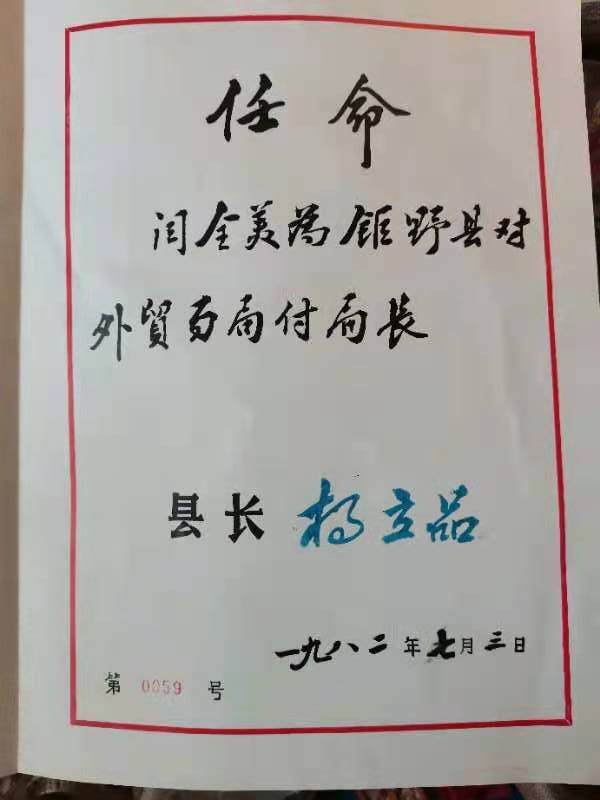 任命
闫全美为鉅野县对
外贸易局付局长
县长 杨立品
一九八二年七月三日
第 0059 号